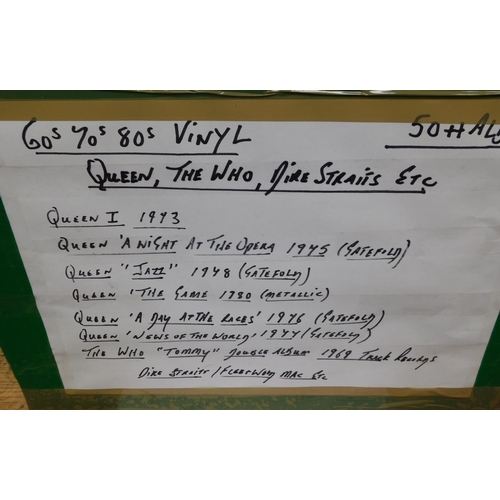 60s 70s 80s VINYL
50+ ALB
QUEEN, THE WHO, DIRE STRAITS ETC
QUEEN I 1973
QUEEN 'A NIGHT AT THE OPERA 1975 (GATEFOLD)
QUEEN "JAZZ" 1978 (GATEFOLD)
QUEEN 'THE GAME 1980 (METALLIC)
QUEEN 'A DAY AT THE RACES' 1976 (GATEFOLD)
QUEEN 'NEWS OF THE WORLD' 1977 (GATEFOLD)
THE WHO "TOMMY" DOUBLE ALBUM 1969 TRACK RECORDS
DIRE STRAITS / FLEETWOOD MAC ETC